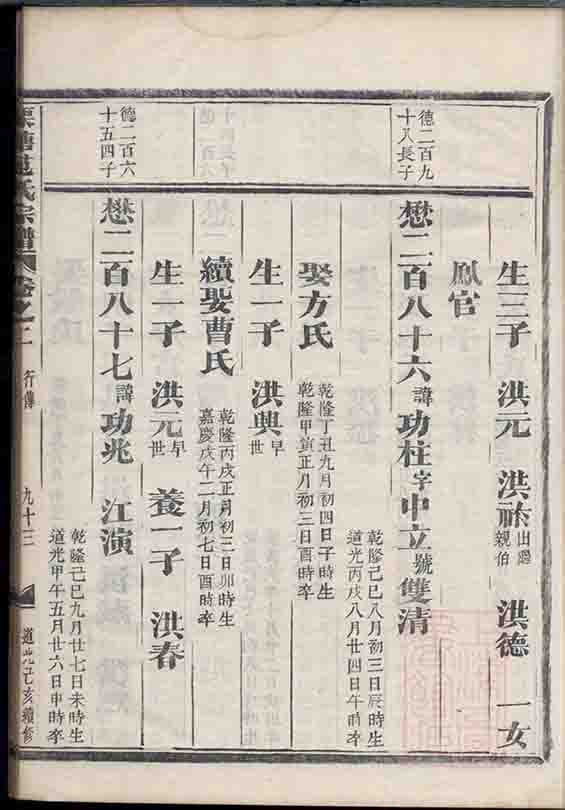 生三子 洪元 洪祚出繼親伯 洪德 一女
鳳官
德二百九十八長子
懋二百八十六諱功柱字中立號雙清
乾隆己巳八月初三日辰時生
道光丙戌八月廿四日午時卒
娶方氏
乾隆丁丑九月初四日子時生
乾隆甲寅正月初三日酉時卒
生一子 洪興早世
續娶曹氏
乾隆丙戌正月初三日卯時生
嘉慶戊午二月初七日酉時卒
生一子 洪元早世 養一子 洪春
德二百六十五四子
懋二百八十七諱功兆 江演
乾隆己巳九月廿七日未時生
道光甲午五月廿六日申時卒
氏宗譜 卷之二 行傳 九十三 道光己亥續修